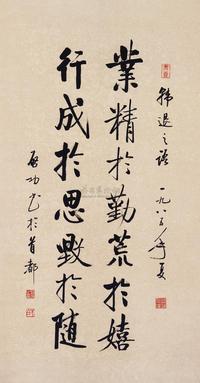 業精於勤荒於嬉
行成於思毀於隨
韓退之語 一九八三年夏
啟功書於首都